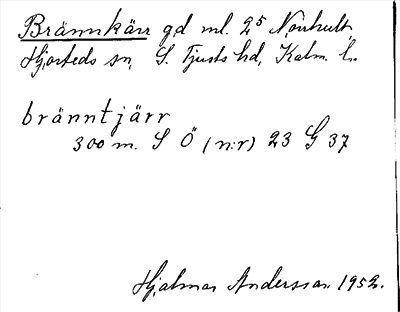 Brännkärr gd ml. 2⁵ Norrhult,
Hjorteds sn, S. Tjusts hd, Kalm. l.
bränntjärr
300 m. S Ö (n:r) 23 G 37
Hjalmar Andersson 1952.